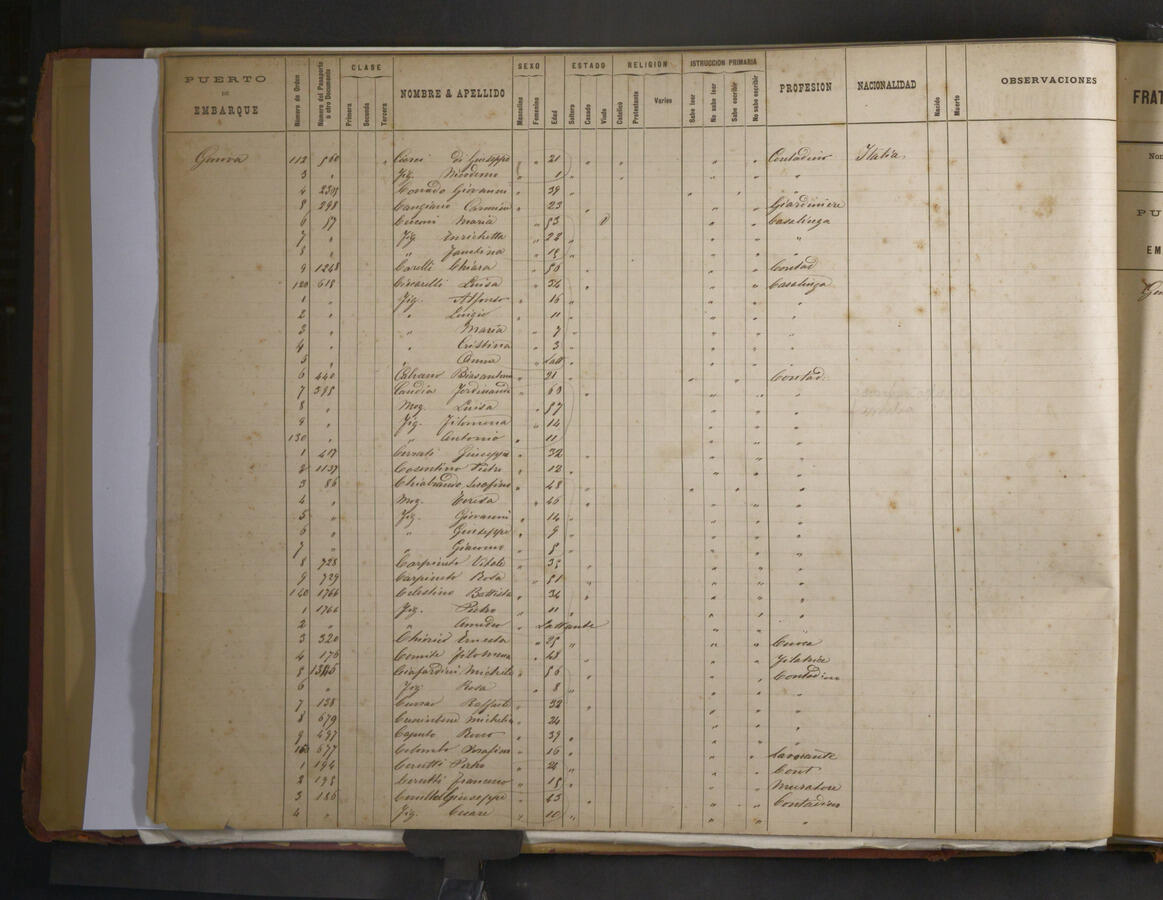 PUERTO DE EMBARQUE
Número de Orden
Número del Pasaporte ú otro Documento
CLASE
Primera Segunda Tercera
NOMBRE & APELLIDO
SEXO
Masculino Femenino
Edad
ESTADO
Soltero Casado Viudo
RELIGION
Católica Protestante Varios
ISTRUCCION PRIMARIA
Sabe leer No sabe leer Sabe escribir No sabe escribir
PROFESION
NACIONALIDAD
Nacido Muerto
OBSERVACIONES
Genova 112 560 di Giuseppe " 21 " " " " Contadino Italia
3 " Fig. Nicodemo " 1 " " " "
4 2308 Corrado Giovanni " 39 " " " "
8 298 Cangiano Carmine " 23 " " " Giardiniere
6 87 Maria " 53 V " " Casalinga
7 " Fig. Enrichetta " 22 " " " "
8 " " Faustina " 15 " " " "
9 1248 Caretti Chiara " 50 " " Contad
120 618 Ciccarelli Luisa " 34 " " " Casalinga
1 " Fig. Alfonso " 16 " " " "
2 " " Luigi " 11 " " " "
3 " " Maria " 7 " " " "
4 " " Cristina " 3 " " " "
5 " " Anna " Latt " " " "
6 440 " 21 " " " Contad.
7 398 Candia Ferdinando " 60 " " " "
8 " Mog. Luisa " 57 " " "
9 " Fig. Filomena " 14 " " "
130 " " Antonio " 11 " " "
1 417 Cerrati Giuseppe " 32 " " " "
2 1137 Cosentino Pietro " 12 " " " "
3 86 Chiabrando Serafino " 48 " " " "
4 " Mog. Teresa " 46 " " " "
5 " Fig. Giovanni " 14 " " " "
6 " " Giuseppe " 9 " " " "
7 " " Giacomo " 5 " " " "
8 728 Carpineto Vitale " 35 " " " "
9 729 Carpineto Rosa " 51 " " " "
140 1766 Celestino Battista " 34 " " " "
1 1766 Fig. Pietro " 11 " " " "
2 " " Amedeo " Lattante " " "
3 320 Ernesta " 25 " " " Cuoca
4 176 Filomena " 48 " " " Filatrice
5 Michele " 56 " " " Contadino
6 " Fig Rosa " 8 " " " "
7 138 " 32 " " " "
8 679 " 24 " " "
9 497 Caputo Rocco " 39 " " " "
150 677 Colombo Serafino " 16 " " " Lavorante
1 194 Cerutti Pietro " 24 " " " Cont
2 195 Cerutti Francesco " 15 " " " Muratore
3 186 Giuseppe " 43 " " " Contadino
4 " Fig. Cesare " 10 " " " "
FRAT
Nom
PU
EM
Gen